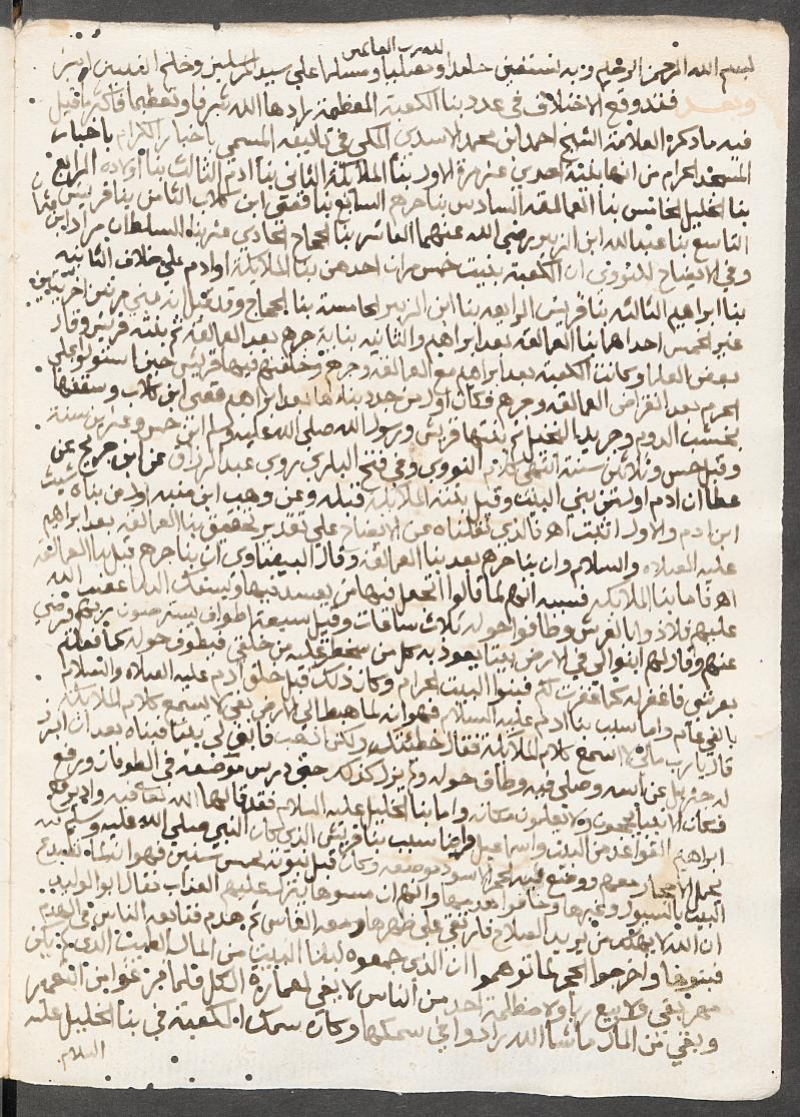 لله رب العالمين
بسم الله الرحمن الرحيم وبه نستعين حامدا ومصليا ومسلما على سيد المرسلين وخاتم النبيين
وبعد فقد وقع الاختلاف في عدد بنا الكعبة المعظمة زادها الله شرفا وتعظيما فاكثر ما قيل
فيه ما ذكره العلامة الشيخ احمد ابن محمد الاسدي المكي في تاليفه المسمى باخبار الكرام باخبار
المسجد الحرام من انها بنيت احدى عشرة مرة الاول بنا الملائكة الثاني بنا ادم الثالث بنا اولاده الرابع
بنا الخليل الخامس بنا العمالقه السادس بنا جرهم السابع بنا قصي ابن كلاب الثامن بنا قريش
التاسع بنا عبد الله ابن الزبير رضي الله عنهما العاشر بنا الحجاج الحادي عشر بناه السلطان مراد
وفي الايضاح للنووي ان الكعبة بنيت خمس مرات احدهن بنا الملائكة او ادم على خلاف الثانيه
بنا ابراهيم الثالثه بنا قريش الرابعه بنا ابن الزبير الخامسة بنا الحجاج وقد قيل انه بني مرتين اخرتين
غير الخمس احداهما بنا العمالقه بعد ابراهيم والثانيه بناية جرهم بعد العمالقه ثم بنته قريش وقال
بعض العلما وكانت الكعبة بعد ابراهيم مع العمالقه وجرهم وخلفتهم فيها قريش حين استولوا على
الحرم بعد انقراض العمالقه وجرهم فكان اول من جدد بناها بعد ابراهيم قصي ابن كلاب وسقفها
بخشب الدوم وجريد النخل ثم بنتها قريش ورسول الله صلى الله عليه وسلم ابن خمس وعشرين سنة
وقيل خمس وثلاثين سنة انتهى كلام النووي وفي فتح الباري روى عبد الرزاق عن ابن جريج عن
عطا ان ادم اول من بنى البيت وقيل بنته الملائكة قبله وعن وهب ابن منبه اول من بناه شيث
ابن ادم والاول اثبت اهـ فالذي نقلناه عن الايضاح على تقدير تحقيق بنا العمالقه بعد ابراهيم
عليه الصلاه والسلام وان بنا جرهم بعد بنا العمالقه وقال البيضاوي ان بنا جرهم قبل بنا العمالقه
اهـ فاما بنا الملائكه فسببه انهم لما قالوا اتجعل فيها من يفسد فيها ويسفك الدما غضب الله
عليهم فلاذوا بالعرش وطافوا حوله ثلاث ساعات وقيل سبعة اطواف يسترضون ربهم فرضي
عنهم وقال لهم ابنوا لي في الارض بيتا يعوذ به كل من سخطت عليه من خلقي فيطوف حوله كما فعلتم
بعرشي فاغفر له كما غفرت لكم فبنوا البيت الحرام وكان ذلك قبل خلق ادم عليه الصلاه والسلام
بالفي عام واما سبب بنا ادم عليه السلام فهو انه لما هبط الى الارض بقي لا يسمع كلام الملائكة
قال يا رب مالي لا اسمع كلام الملائكة فقال خطيئتك ولكن اذهب فابن لي بيتا فبناه بعد ان ابرز
له جبريل عن اسه وصلى فيه وطاف حوله ولم يزل كذلك حتى درس موضعه في الطوفان ورفع
فكان الانبيا يحجون ولا يعلمون مكانه واما بنا الخليل عليه السلام فقد قالها الله تعالى فيه واذ يرفع
ابراهيم القواعد من البيت واسماعيل واما سبب بنا قريش الذي كان النبي صلى الله عليه وسلم فيه
يحمل الاحجار معهم ووضع فيه الحجر الاسود موضعه وكان قبل نبوته بخمس سنين فهو انشاه
البيت بالسيول وغيرها وخافوا هدمها وانهم ان مسوها ينزل عليهم العذاب فقال ابو الوليد
ان الله لا يهلك من يريد الصلاح فارتقى على ظهرها ومعه الفاس ثم هدم فتابعه الناس في الهدم
فبنوها واخرجوا الحجر لما توهموا ان الذي جمعوه لبنا البيت من المال الطيب الذي لم يكن
مهر بغي ولا بيع ربا ولا مظلمة احد من الناس لا يفي لعمارة الكل فلما فرغوا من التعمير
وبقي من المال ما شا الله زادوا في سمكها وكان سمك الكعبة في بنا الخليل عليه
السلام